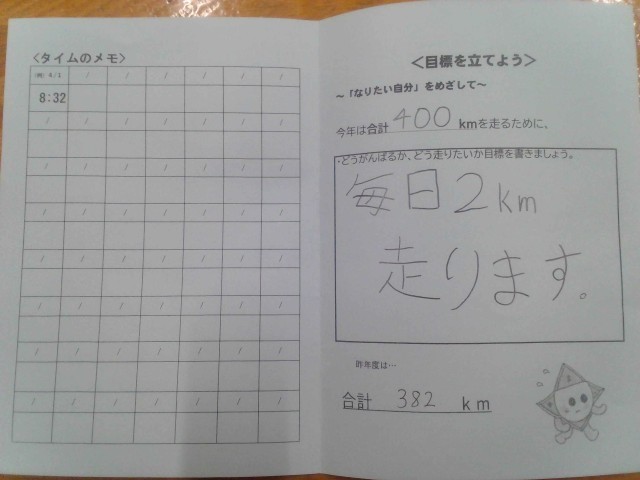 <タイムのメモ>
(例) 4/1 / / / / / /
8:32
/ / / / / / /
/ / / / / / /
/ / / / / / /
/ / / / / / /
/ / / / / / /
/ / / / / / /
/ / / / / / /
<目標を立てよう>
～「なりたい自分」をめざして～
今年は合計 400 kmを走るために、
・どうがんばるか、どう走りたいか目標を書きましょう。
毎日2km
走ります。
昨年度は…
合計 382 km